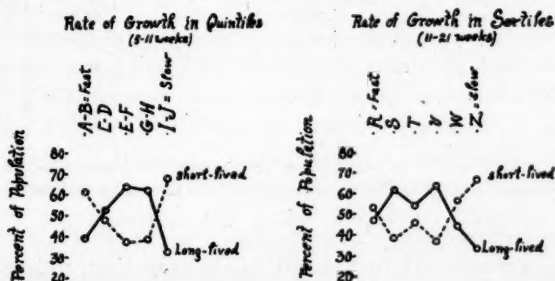 Rate of Growth in Quintiles
(5-11 weeks)
A-B=Fast
C-D
E-F
G-H
I-J=Slow
Percent of Population
80-
70-
60-
50-
40-
30-
20-
short-lived
Long-lived
Rate of Growth in Sextiles
(11-21 weeks)
R=Fast
S
T
V
W
Z=Slow
Percent of Population
80-
70-
60-
50-
40-
30-
20
short-lived
Long-lived